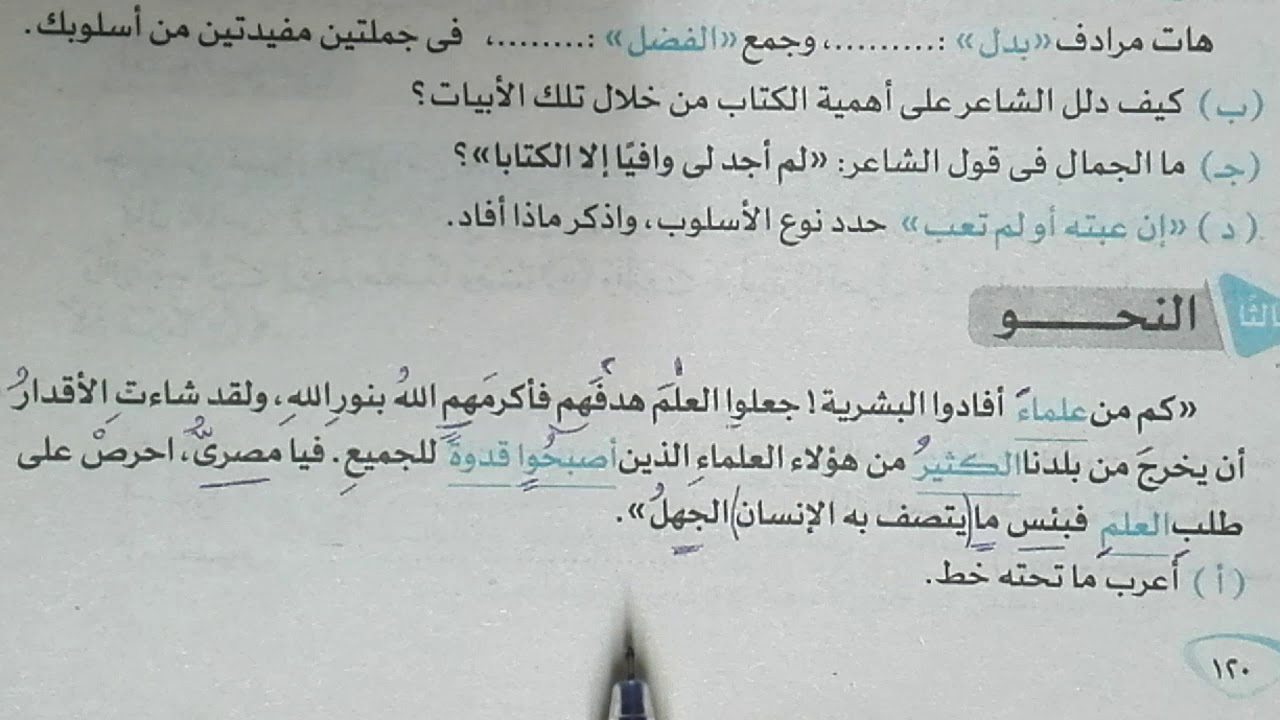 هات مرادف «بدل» :.........، وجمع «الفضل» :.........، فى جملتين مفيدتين من أسلوبك.
(ب) كيف دلل الشاعر على أهمية الكتاب من خلال تلك الأبيات؟
(جـ) ما الجمال فى قول الشاعر: «لم أجد لى وافيًا إلا الكتابا»؟
(د) «إن عبته أو لم تعب» حدد نوع الأسلوب، واذكر ماذا أفاد.
النحـــــو
«كم من علماءَ أفادوا البشرية! جعلوا العلمَ هدفَهم فأكرمَهم اللهُ بنورِ اللهِ، ولقد شاءت الأقدارُ
أن يخرجَ من بلدنا الكثيرُ من هؤلاء العلماءِ الذين أصبحُوا قدوةً للجميعِ. فيا مصرىُّ، احرصْ على
طلبِ العلمِ فبئس ما (يتصف به الإنسان) الجهلُ».
(أ) أعرب ما تحته خط.
١٢٠